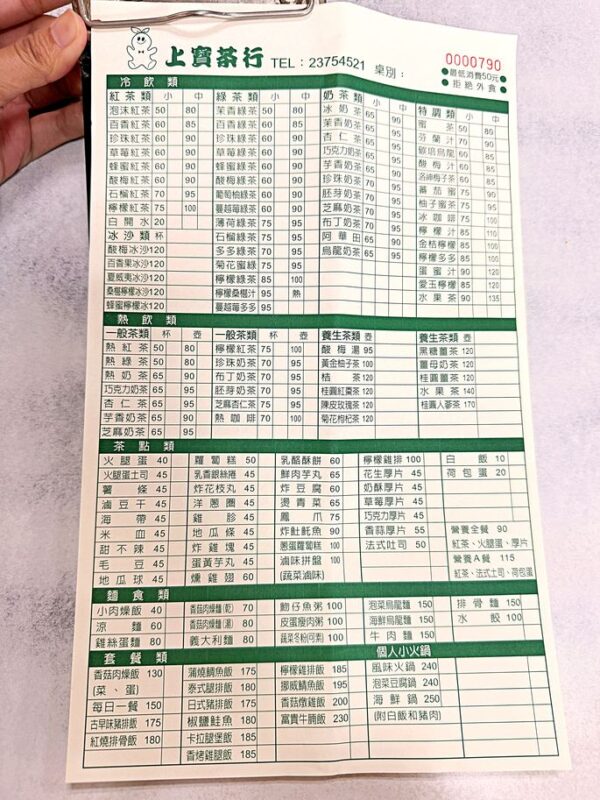 上寶茶行 TEL：23754521 桌別：
0000790
●最低消費50元●
●拒絕外食●
冷飲類
紅茶類 小 中
泡沫紅茶 50 80
百香紅茶 60 85
珍珠紅茶 60 90
草莓紅茶 60 90
蜂蜜紅茶 60 90
酸梅紅茶 60 90
石榴紅茶 70 95
檸檬紅茶 75 100
白開水 20
冰沙類 杯
酸梅冰沙 120
百香果冰沙 120
夏威夷冰沙 120
桑椹檸檬冰沙 120
蜂蜜檸檬冰沙 120
綠茶類 小 中
茉香綠茶 50 80
百香綠茶 60 85
珍珠綠茶 60 90
草莓綠茶 60 90
蜂蜜綠茶 60 90
酸梅綠茶 60 90
葡萄柚綠茶 60 90
蔓越莓綠茶 60 90
薄荷綠茶 75 95
石榴綠茶 75 95
多多綠茶 70 95
菊花蜜綠 75 95
檸檬綠茶 85 100
檸檬桑椹汁 95 熱
蔓越莓多多 95
奶茶類 小 中
冰奶茶 65 90
茉香奶茶 65 90
杏仁茶 65 90
巧克力奶茶 65 90
芋香奶茶 65 90
珍珠奶茶 70 95
胚芽奶茶 70 95
芝麻奶茶 70 95
布丁奶茶 70 95
阿華田 65 90
烏龍奶茶 65 95
特調類 小 中
蜜茶 50 80
芋蘭汁 70 90
碳焙烏龍 60 85
酸梅汁 60 85
洛神梅子茶 60 85
蕃茄蜜 75 95
柚子蜜茶 75 95
冰咖啡 75 100
檸檬汁 85 110
金桔檸檬 85 100
檸檬多多 85 100
蛋蜜汁 90 120
愛玉檸檬 85 120
水果茶 90 135
熱飲類
一般茶類 杯 壺
熱紅茶 50 80
熱綠茶 50 80
熱奶茶 65 90
巧克力奶茶 65 95
杏仁茶 65 95
芋香奶茶 65 95
芝麻奶茶 65 95
一般茶類 杯 壺
檸檬紅茶 75 100
珍珠奶茶 70 95
布丁奶茶 70 95
胚芽奶茶 70 95
芝麻杏仁茶 75 95
熱咖啡 70 100
養生茶類 壺
酸梅湯 95
黃金柚子茶 100
桔茶 120
桂圓紅棗茶 120
陳皮玫瑰茶 120
菊花枸杞茶 120
養生茶類 壺
黑糖薑茶 120
薑母奶茶 120
桂圓薑茶 120
水果茶 140
桂圓人蔘茶 170
茶點類
火腿蛋 40
火腿蛋土司 45
薯條 45
滷豆干 45
海帶 45
米血 45
甜不辣 45
毛豆 45
地瓜球 45
蘿蔔糕 50
乳香銀絲捲 45
炸花枝丸 45
洋蔥圈 45
雞胗 45
地瓜條 45
炸雞塊 45
蛋黃芋丸 45
燻雞翅 60
乳酪酥餅 60
鮮肉芋丸 65
炸豆腐 60
燙青菜 65
鳳爪 75
炸魠魠魚 90
蔥蛋蘿蔔糕 100
滷味拼盤 100
(蔬菜滷味)
檸檬雞排 100
花生厚片 45
奶酥厚片 45
草莓厚片 45
巧克力厚片 45
香蒜厚片 55
法式吐司 50
白飯 10
荷包蛋 20
營養全餐 90
紅茶、火腿蛋、厚片
營養A餐 115
紅茶、法式土司、荷包蛋
麵食類
小肉燥飯 40
涼麵 60
雞絲蛋麵 80
香菇肉燥麵(乾) 70
香菇肉燥麵(湯) 80
義大利麵 80
魩仔魚粥 100
皮蛋瘦肉粥 100
蔬菜冬粉(河粉) 100
泡菜烏龍麵 150
海鮮烏龍麵 150
牛肉麵 150
排骨麵 150
水餃 100
套餐類
香菇肉燥飯 130
(菜、蛋)
每日一餐 150
古早味豬排飯 175
紅燒排骨飯 180
蒲燒鯛魚飯 175
泰式腿排飯 180
日式豬排飯 175
椒鹽鮭魚 180
卡拉腿堡飯 185
香烤雞腿飯 185
檸檬雞排飯 185
挪威鯖魚飯 195
香菇燉雞飯 200
富貴牛腩飯 230
個人小火鍋
風味火鍋 240
泡菜豆腐鍋 240
海鮮鍋 250
(附白飯和豬肉)